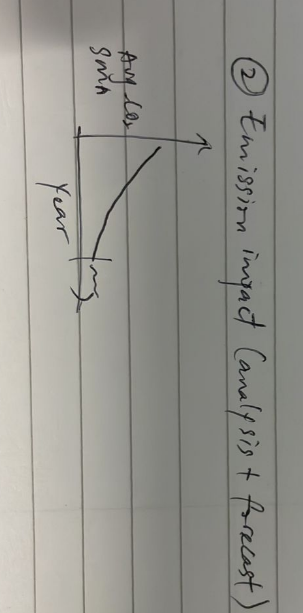 ② Emission impact (analysis + forecast)
Avg CO2
Year